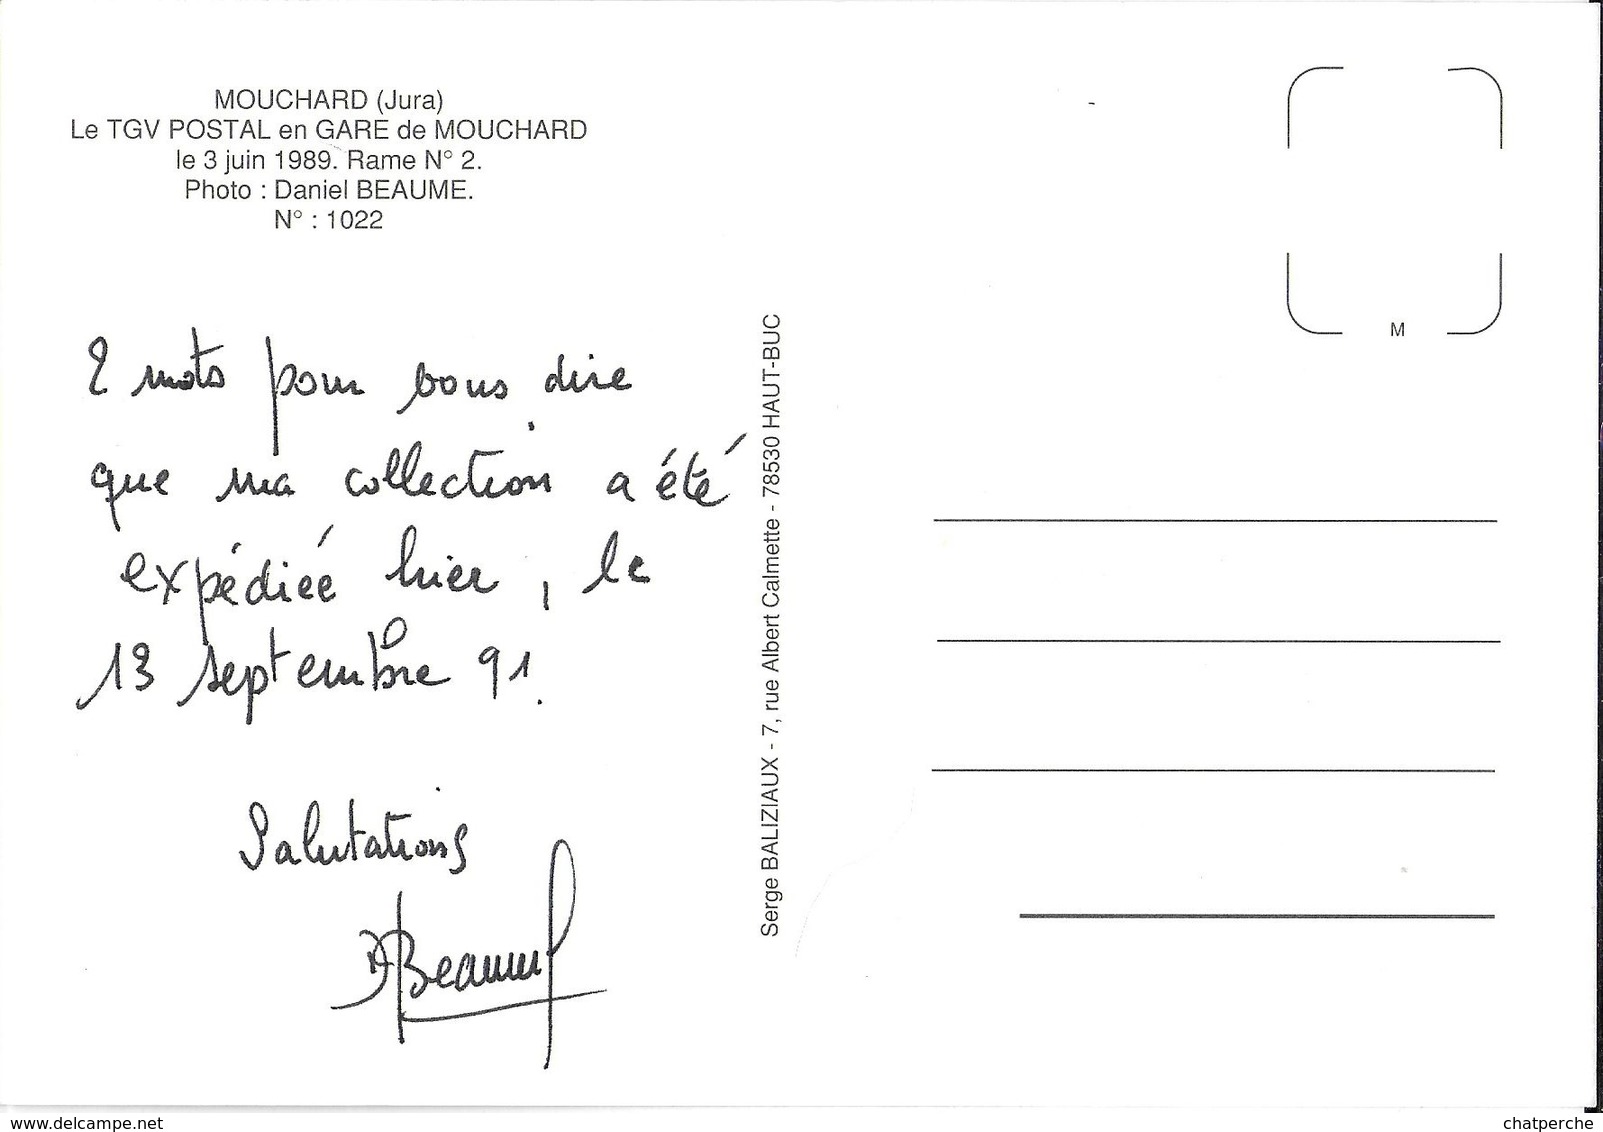 MOUCHARD (Jura)
Le TGV POSTAL en GARE de MOUCHARD
le 3 juin 1989. Rame N° 2.
Photo : Daniel BEAUME.
N° : 1022
2 mots pour vous dire
que ma collection a été
expédiée hier, le
13 septembre 91.
Salutations
DBeaume
Serge BALIZIAUX - 7, rue Albert Calmette - 78530 HAUT-BUC
M
www.delcampe.net
chatperche